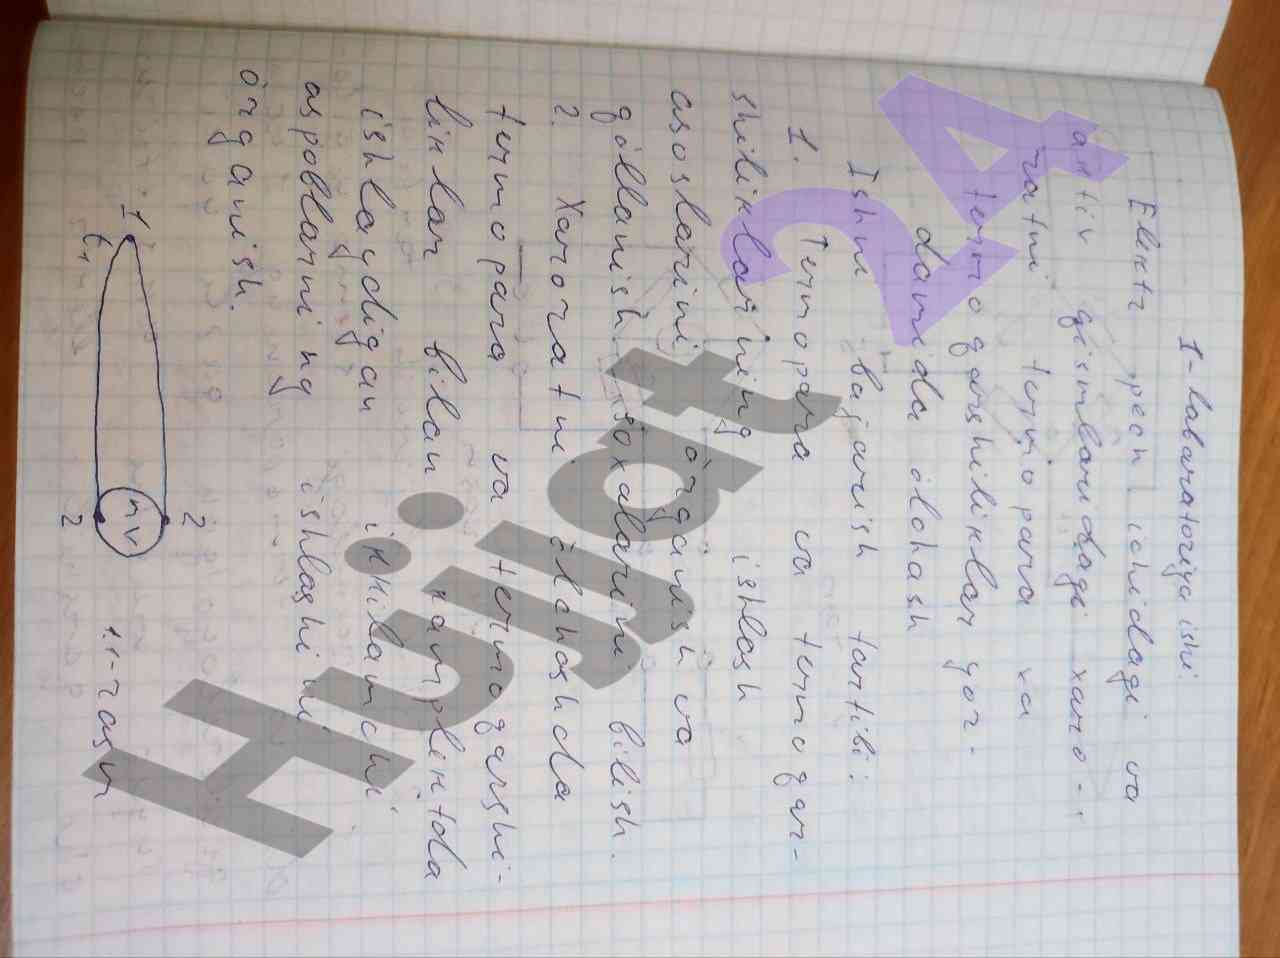 1-labaratoriya ishi.
Elektr pech ichidagi va
aktiv qismlaridagi xaro-
ratni termopara va
termoqarshiliklar yor-
damida ólchash
Ishni bajarish tartibi:
1. Termopara va termoqar-
shiliklarning ishlash
asoslarini órganish va
qóllanish soxalarini bilish.
2. Xaroratni ólchashda
termopara va termoqarshi-
liklar bilan kamplektda
ishlaydigan ikkilamchi
aspoblarning ishlashini
órganish.
1
t₁
mV
2
2
1.1-rasm
Hujjat
24